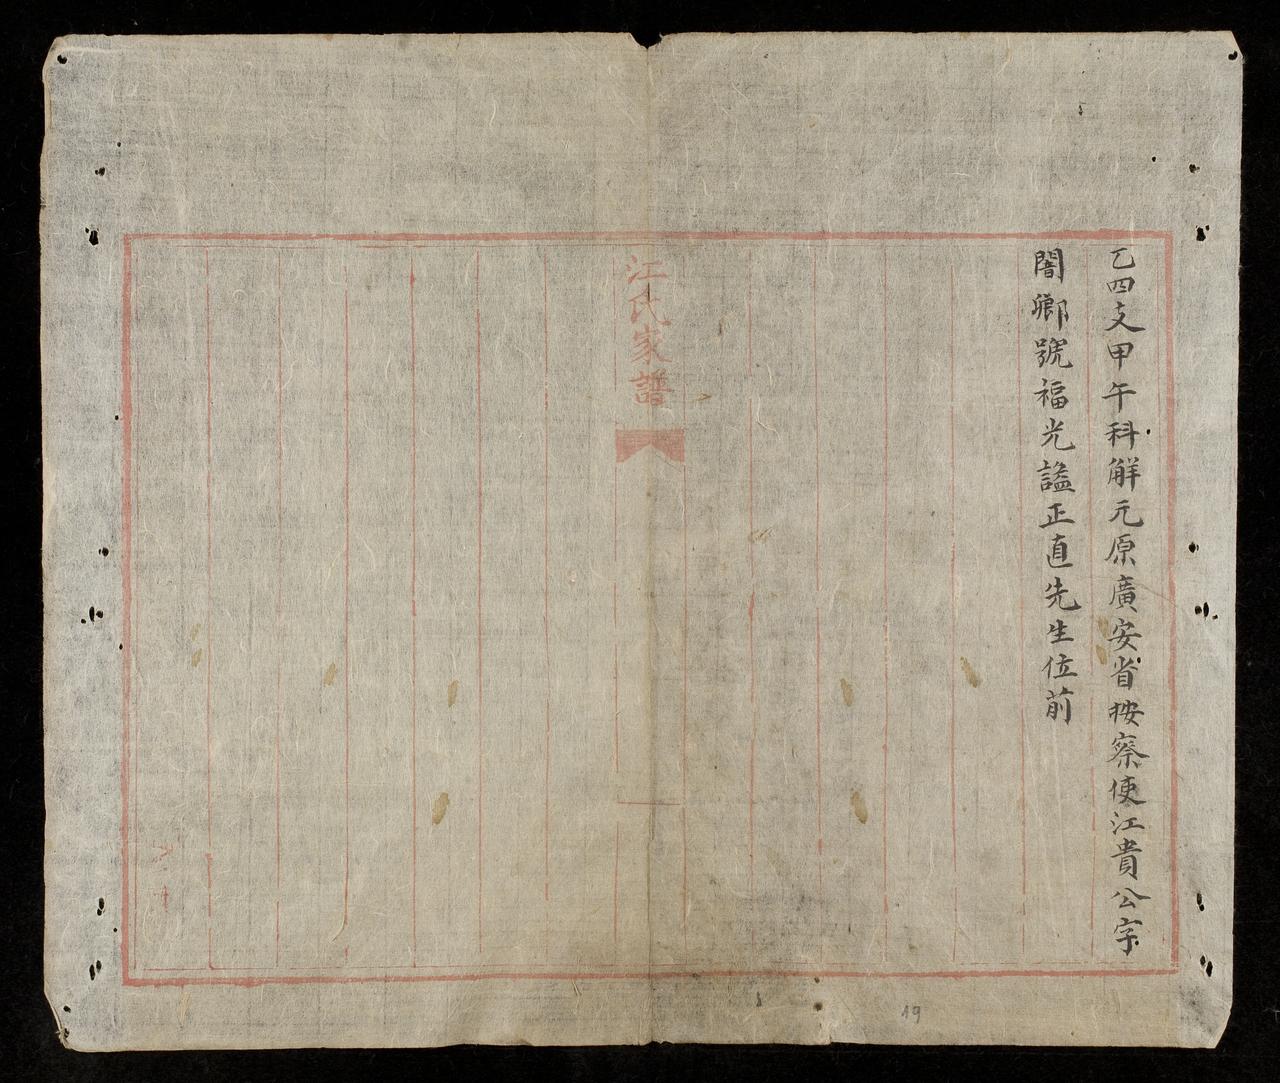 乙四支甲午科解元原廣安省按察使江貴公字
闇鄉號福光諡正直先生位前
江氏家譜
19